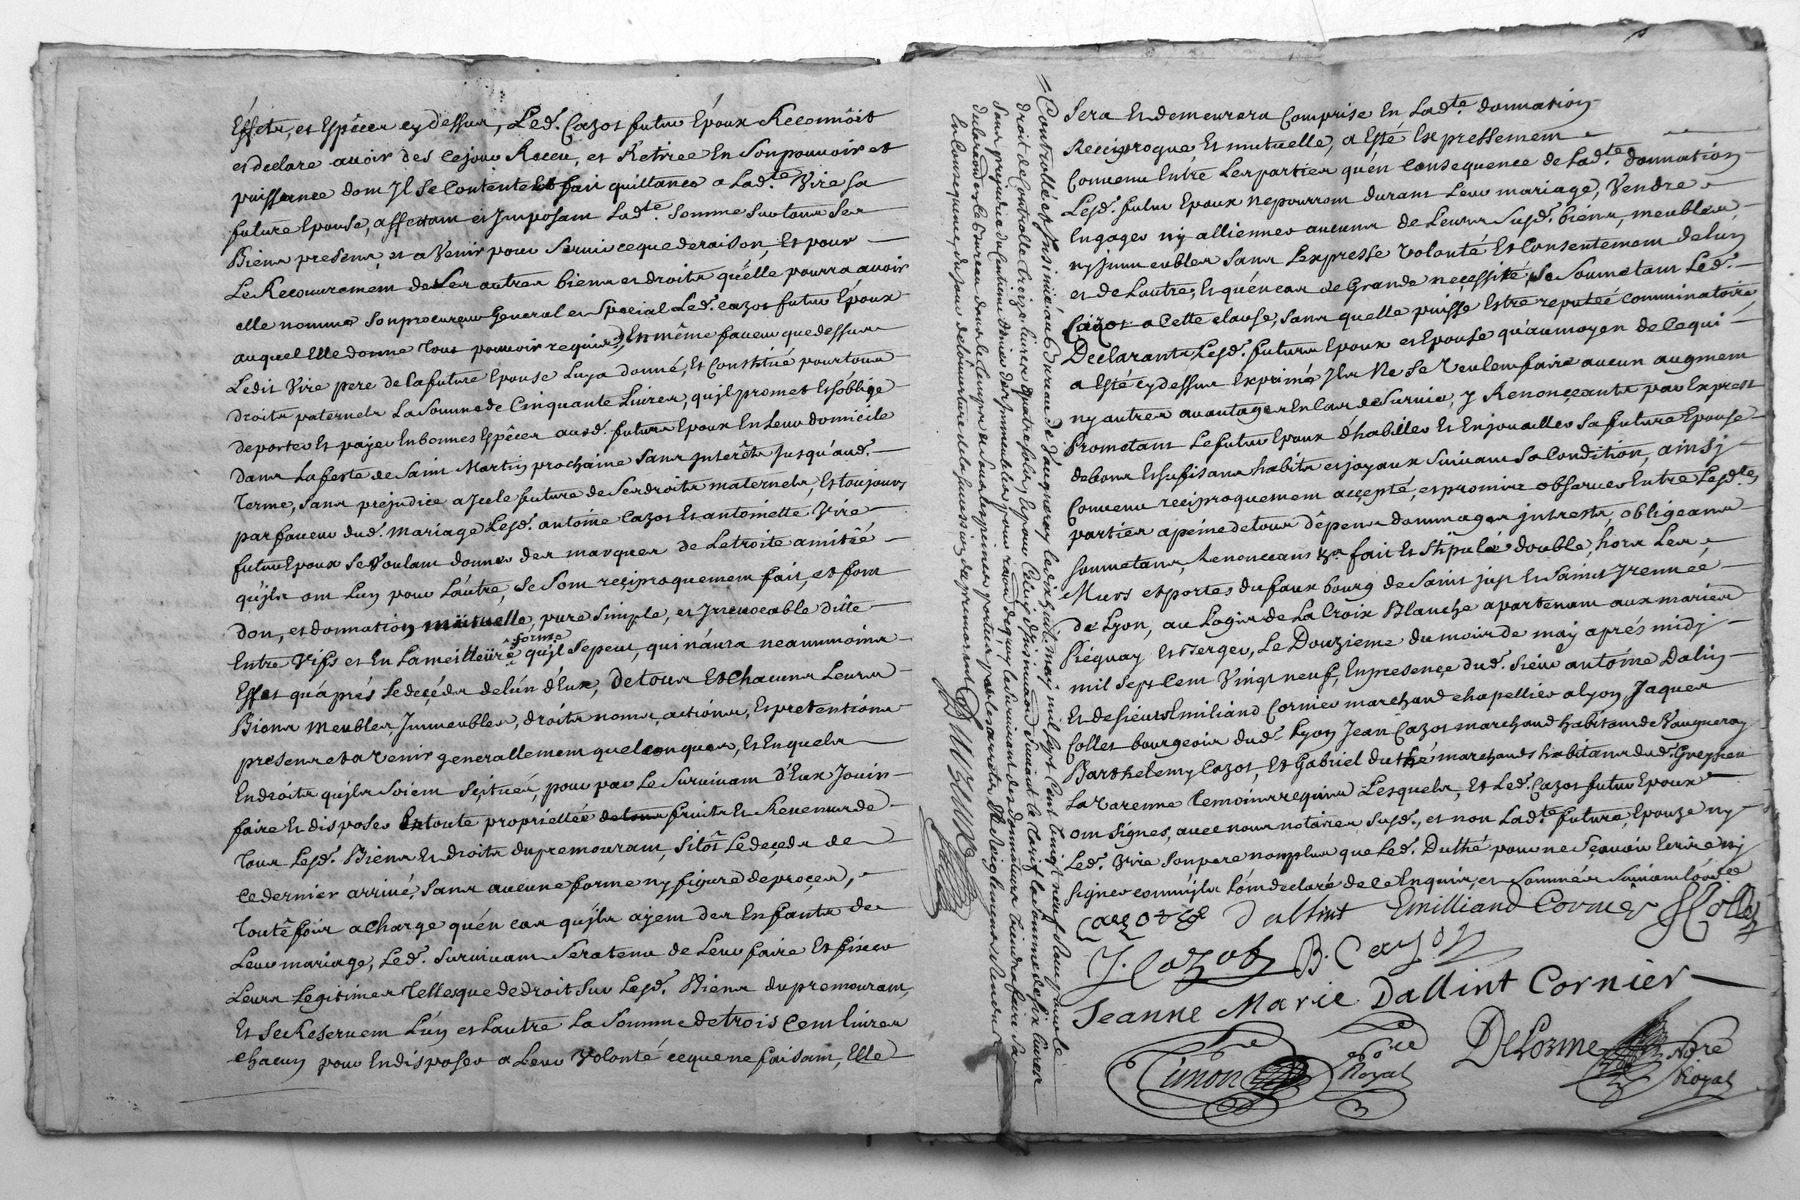 Effets, et Espêces cy dessus, Led. Cazot futur Époux Reconnôit
et declare avoir des cejour Receu, et Retiree En Son pouvoir et
puissance dont Jl Se Contente Et fait quittance a Lad.te Vire Sa
future Epouse, affectant et Jmposant Lad.te Somme Sur tous Ses
Biens presens, et a Venir pour Servir ce que de raison, Et pour
Le Recouvrement de Ses autres biens et droits qu'elle pourra avoir
elle nomme Son procureur General et Special Led. Cazot futur Époux
auquel Elle donne tous pouvoir requis, En même faveur que dessus
Ledit Vire pere de La future Epouse Luy a donné, Et Constitué pour tous
droits paternels La Somme de Cinquante Livres, qu'il promet Et S'oblige
de porter Et payer En bonnes Espêces ausd. futurs Epoux En Leur domicile
Dans La feste de Saint Martin prochaine Sans Jnterêts Jusqu'aud.
Terme, Sans prejudice a Jcele future de Ses droits maternels, Et toujours
par faveur dud. mariage Lesd. antoine Cazot Et antoinette Vire
futurs Epoux Se Voulant donner des marques de Letroite amitié
qu'jls ont Lun pour Lautre, Se Sont reciproquement fait, et font
don, et donnation mutuelle, pure Simple, et Jrrevocable ditte
Entre Vifs et En La meilleure forme qu'jl Se peut, qui n'aura neammoins
Effet qu'aprés Le decéds de L'un d'Eux, De tous Et Chacuns Leurs
Biens meubles Jmmeubles, droits noms, actions, Et pretentions
presens et a Venir generallement quelconques, Et En quels
Endroits qu'jls Soient Scitués, pour par Le Survivant d'Eux Jouir
faire Et disposer En toute proprietée de tous fruits Et Revenus de
Tous Lesd. Biens Et Droits du premourant, Sitôt Le decéds de
ce dernier arrivé, Sans aucune forme ny figure de procés,
Toutefois a Charge qu'en cas qu'jls ajent des Enfants de
Leur mariage, Led. Survivant Sera tenu de Leur faire Et fixer
Leurs Legitimes telles que de droit Sur Lesd. Biens du premourant,
Et Se Reservent L'un et Lautre La Somme de trois Cent Livres
chacun pour En disposer a Leur Volonté ce que ne faisant, Elle
Sera Et demeurera Comprise En Lad.te donnation
Reciproque Et mutuelle, a Esté Expressement
Convenu Entre Les parties qu'en Consequence de Lad.te donnation
Lesd. futurs Epoux ne pourront durant Leur mariage, Vendre
Engager ny alliener aucuns de Leurs Susd. biens, meubles,
ny Jmmeubles Sans L'expresse Volonté Et Consentement de Lun
et de Lautre, Et qu'en cas de Grande necessité, Se Soumetant Led.
Cazot a Cette clause, Sans quelle puisse Estre reputée comminatoire
Declarants Lesd. futurs Epoux et Epouse qu'au moyen de ce qui
a Esté cy dessus Exprimé Jls Ne Se Veulent faire aucun augment
ny autres avantages En Cas de Survie, y Renonceants par Exprest
Prometant Le futur Epoux d'habiller Et Enjoualler Sa future Epouse
de bons Et Sufisans habits et joyaux Suivant Sa Condition, ainsj
Convenu reciproquement accepté, et promis observer Entre Lesd.tes
parties a peine de tous dêpens dommages jnterests, obligeans
Soumetans, Renonceans &a fait Et Stipulé double, hors Les
Murs et portes du faux bourg de Saint just Et Saint Jrennée
de Lyon, au Logis de La Croix Blanche apartenant aux mariés
Piéguay et Berger, Le Douzieme du mois de maj aprés midj
mil Sept Cent Vingt neuf, En presence du d. Sieur antoine Dalin
Et de Sieurs Emiliand Cormier marchand chapellier a Lyon, Jaques
Collet bourgeois dud. Lyon Jean Cazot marchand habitant de Vaugneray
Barthelemy Cazot, Et Gabriel duthé marchands habitans dud. Greysieu
La Varenne Temoins requis Lesquels, Et Led. Cazot futur Epoux
ont Signés, avec nous notaires Susd., et non Lad.te future, Epouze ny
Led. Vire Son pere non plus que Led. Duthé pour ne Sçavoir Ecrire nj
Signer comm'jls l'ont declaré de ce Enquis, et Sommés Suivant L'ord.ce
Cazot
Dallint
Emilliand Cormier
J Collet
J. Cazot
B. Cazot
Jeanne Marie Dallint Cornier
Simon
Royal
DeLorme
No.re
Royal
Controllé et Jnsinüé au Bureau de Vaugneray le dixhuit may mil Sept Cent Vingt neuf